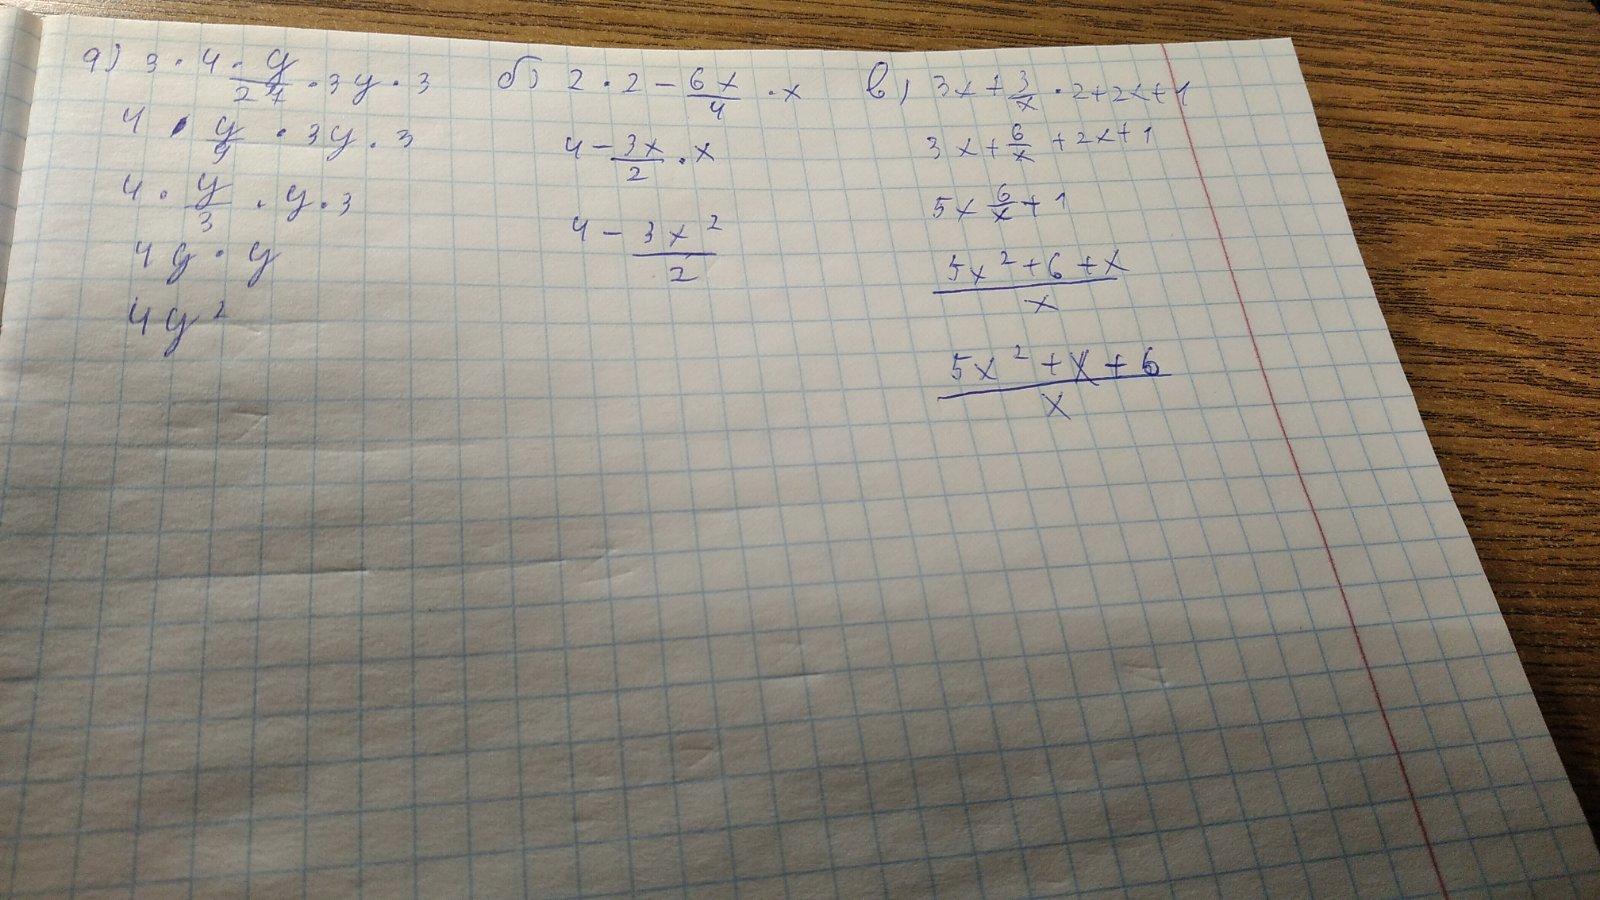 а) 3 · 4 · y/27 · 3y · 3
4 · y/9 · 3y · 3
4 · y/3 · y · 3
4y · y
4y²
б) 2 · 2 - 6x/4 · x
4 - 3x/2 · x
4 - 3x²/2
в) 3x + 3/x · 2 + 2x + 1
3x + 6/x + 2x + 1
5x 6/x + 1
5x² + 6 + x/x
5x² + x + 6/x